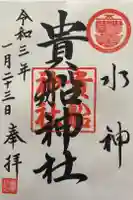 奉拝
水神
貴船神社
貴船神社
令和三年
一月二十三日